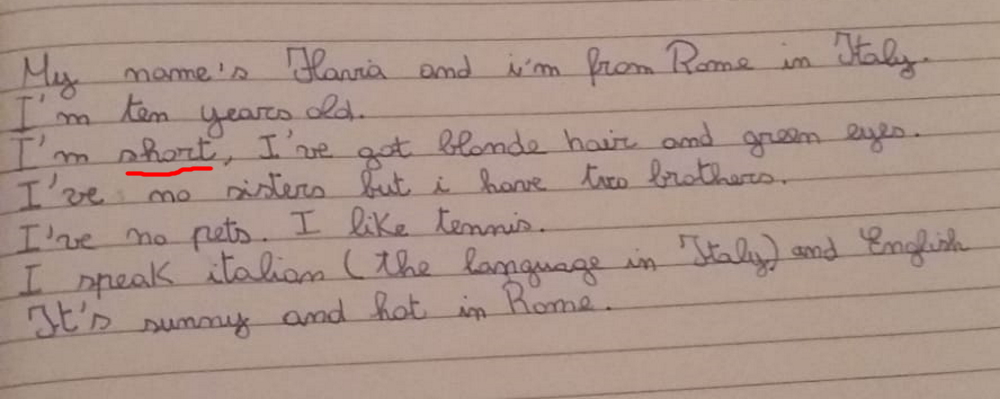 My name's Ilaria and i'm from Rome in Italy.
I'm ten years old.
I'm short, I've got blonde hair and green eyes.
I've no sisters but i have two brothers.
I've no pets. I like tennis.
I speak italian (the language in Italy) and English
It's sunny and hot in Rome.